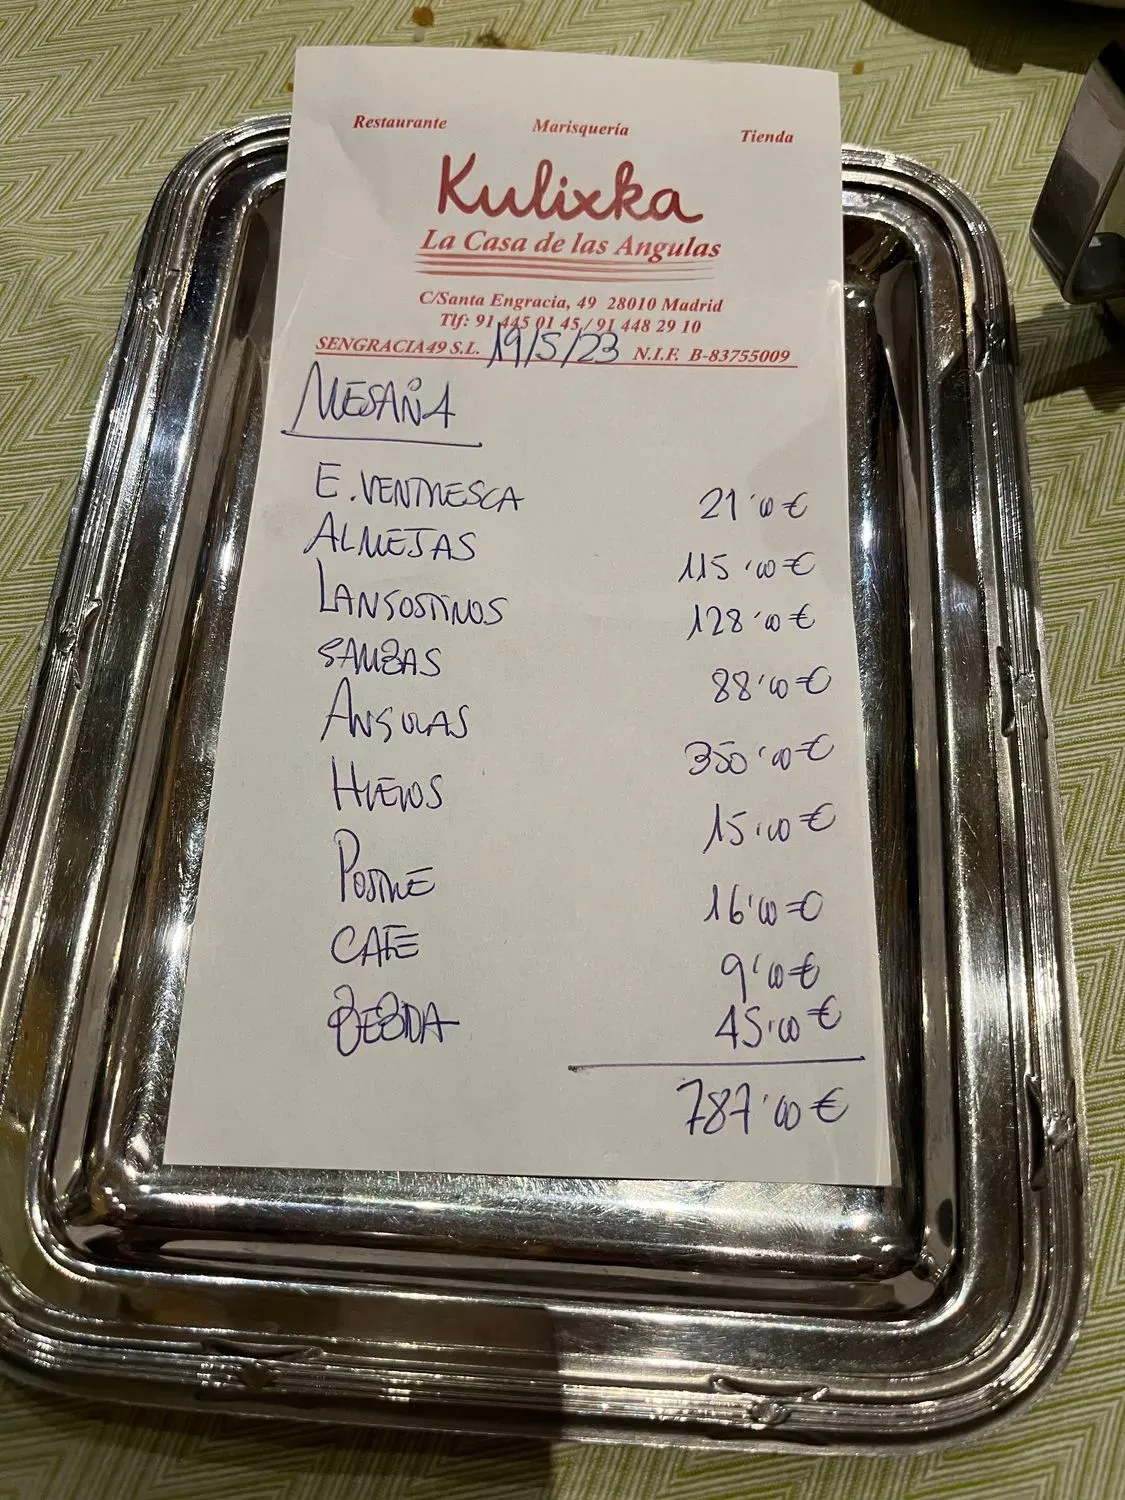 Restaurante Marisquería Tienda
Kulixka
La Casa de las Angulas
C/Santa Engracia, 49 28010 Madrid
Tlf: 91 445 01 45 / 91 448 29 10
SENGRACIA49 S.L. 19/5/23 N.I.F. B-83755009
MESA Nº 4
E. VENTRESCA 21'00 €
ALMEJAS 115'00 €
LANGOSTINOS 128'00 €
GAMBAS 88'00 €
ANGULAS 350'00 €
HUEVOS 15'00 €
POSTRE 16'00 €
CAFE 9'00 €
BEBIDA 45'00 €
787'00 €